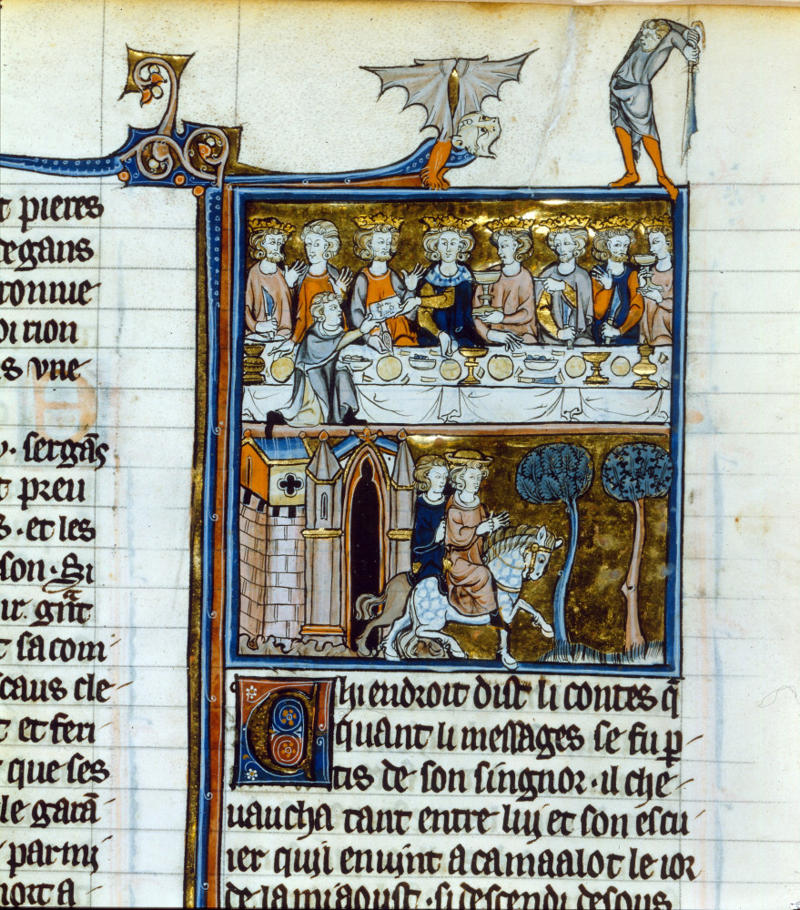 t pieres
degans
ronnue
oi rion
s vne
y. sergãs
t preu
s. et les
son. Si
ir. gnt
t sa com
scaus cle
t et feri
que ses
le garã
parmi
mort a
Chi endroit dist li contes q̃
quant li messages se fu p
tis de son singnor. il che
uaucha tant entre luy et son escu
ier quil enuint a camaalot le ior
de la miaoust. si descendi desous